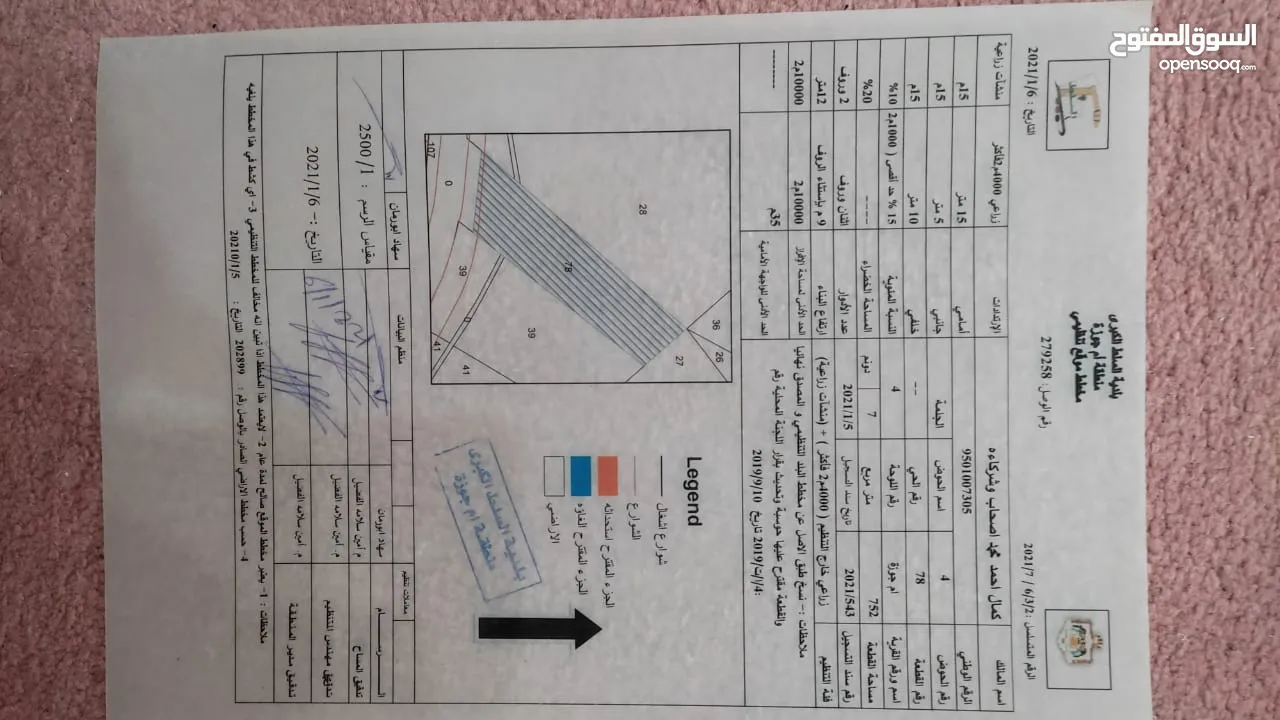 السوق المفتوح
opensooq.com
بلدية السلط الكبرى
منطقة ام جوزة
مخطط موقع تنظيمي
التاريخ : 2021/1/6
رقم الوصل: 279258
الرقم المتسلسل : 2021/7 / 6/3/2
اسم المالك
كمال احمد محمد اصحاب وشركاءه
الرقم الوطني 9501007305
رقم الحوض 4 اسم الحوض الجلمة
رقم القطعة 78 رقم الحي ---
اسم ورقم القرية ام جوزة رقم اللوحة 4
مساحة القطعة 752 متر مربع 7 دونم
رقم سند التسجيل 2021/543 تاريخ سند التسجيل 2021/1/5
فئة التنظيم زراعي خارج التنظيم (4000م2 فأكثر) + (منشآت زراعية)
الإرتدادات زراعي 4000م2 فأكثر منشآت زراعية
أمامي 15 متر 15م
جانبي 5 متر 15م
خلفي 10 متر 15م
النسبة المئوية 15 % حد أقصى (1000م2 10%
المساحة الخضراء ---- 20%
عدد الأدوار اثنان وروف 2 وروف
ارتفاع البناء 9 م باستثناء الروف 12متر
الحد الأدنى لمساحة الإفراز 10000م2 10000م2
الحد الأدنى للواجهة الأمامية 35م -------
ملاحظات :- نسخ طبق الاصل عن مخطط البلد التنظيمي و المصدق نهائيا
والقطعة مقترح عليها حوسبة وتحديث بقرار اللجنة المحلية رقم
4/ا/ت/2019 تاريخ 2019/9/10
28
78
36
26
27
39
39
41
41
0
0
107
Legend
شوارع اشغال
الشوارع
الجزء المقترح استحداثه
الجزء المقترح الغاؤه
الاراضي
بلدية السلط الكبرى
منطقة ام جوزة
معاملات تنظيم
منظم البيانات
سهاد ابورمان
الرسام
سهاد ابورمان
تدقيق المساح
م. امين سلامه الفضيل
تدقيق مهندس التنظيم
م. امين سلامه الفضيل
تدقيق مدير المنطقة
م. امين سلامه الفضيل
مقياس الرسم : 1/ 2500
التاريخ :- 2021/1/6
ملاحظات : 1- يعتبر مخطط الموقع صالح لمدة عام 2- لايعتمد هذا المخطط اذا تبين انه مخالف للمخطط التنظيمي 3- اي كشط في هذا المخطط يلغيه
4- حسب مخطط الاراضي الصادر بالوصل رقم : 202899 التاريخ : 20210/1/5